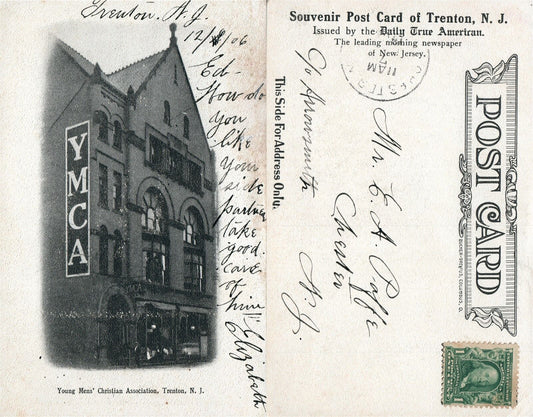 Trenton, N. J.
12/8/06
Ed-
How do
you
like
your
side
partner
take
good
care
of
him
Elizabeth
YMCA
Young Mens' Christian Association, Trenton, N. J.
Souvenir Post Card of Trenton, N. J.
Issued by the Daily True American.
The leading morning newspaper
of New Jersey.
This Side For Address Only.
POST CARD
11 AM
Mr. E. A.
Chester
N. J.
c/o
1